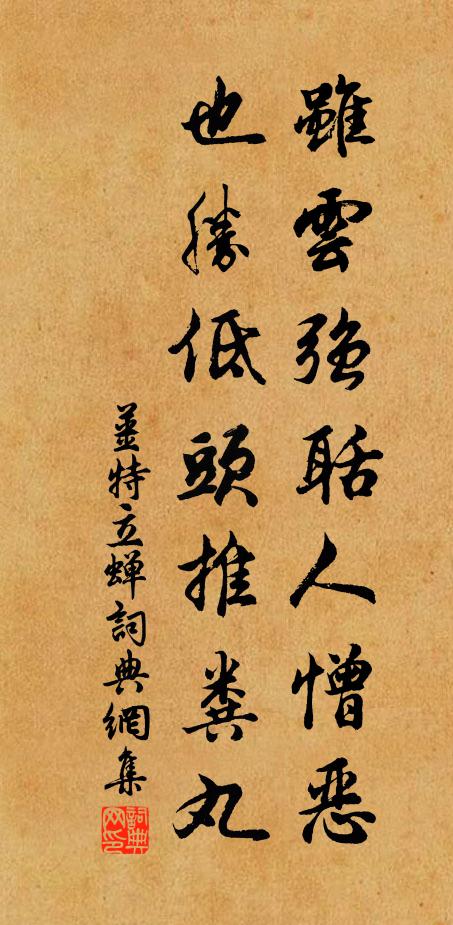 雖雲強聒人憎惡
也勝低頭推糞丸
姜特立蟬詞典網集
詞典网印